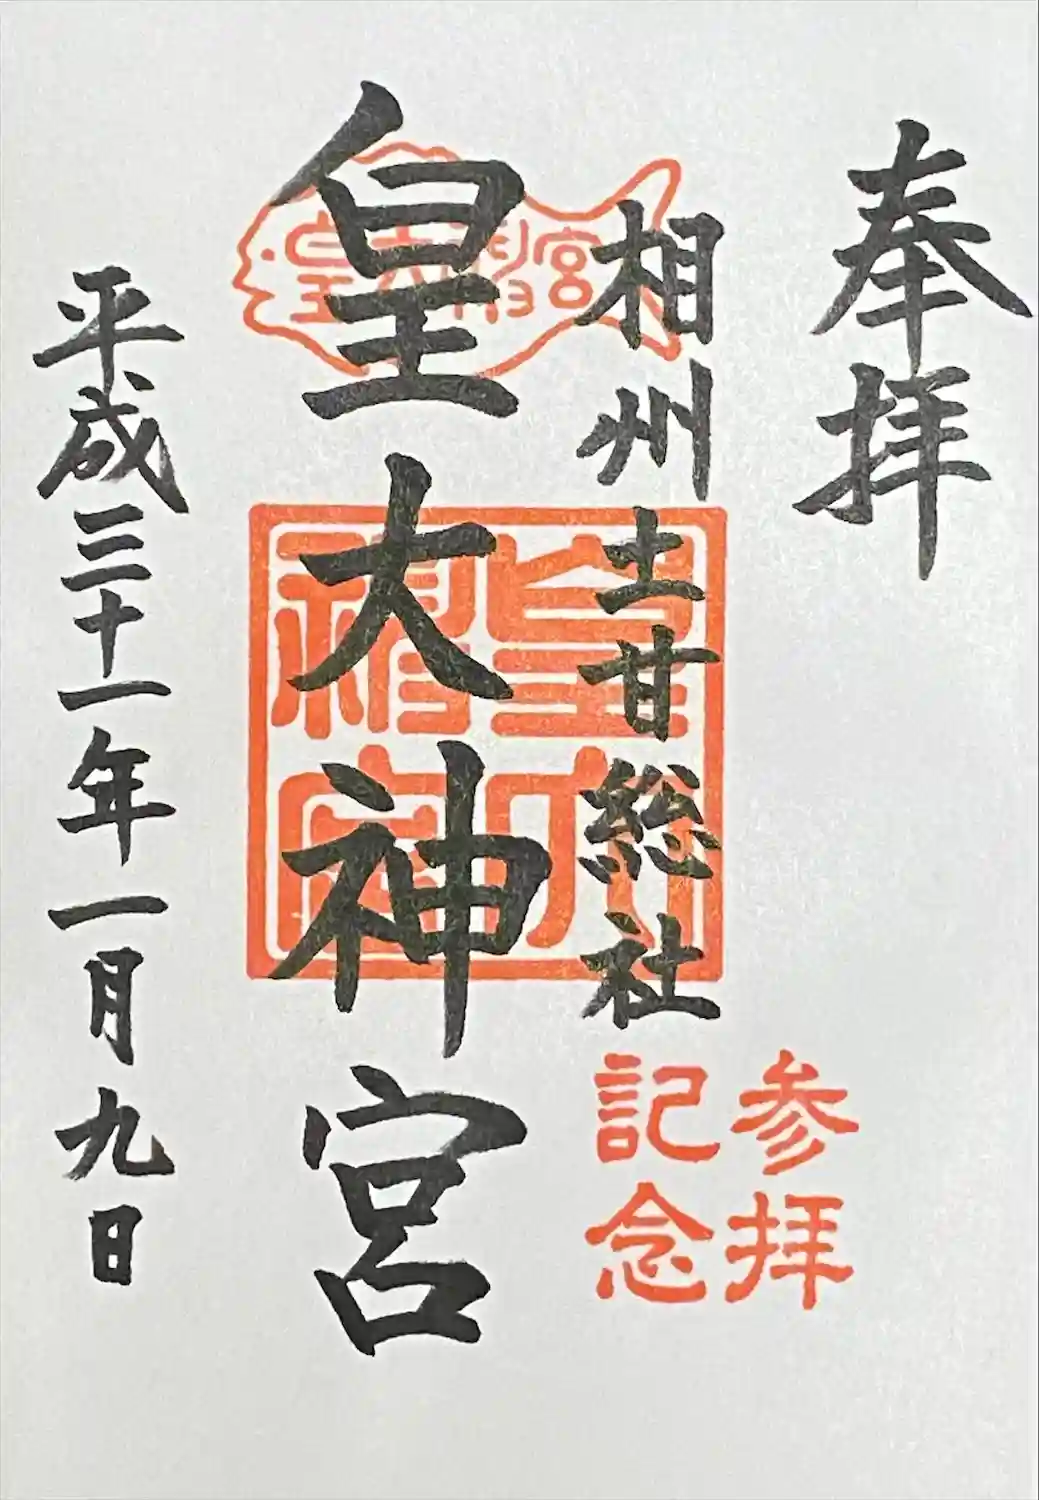 奉拝
相州土甘総社
参拝
記念
皇大神宮
皇大神宮
皇大神宮
平成三十一年一月九日